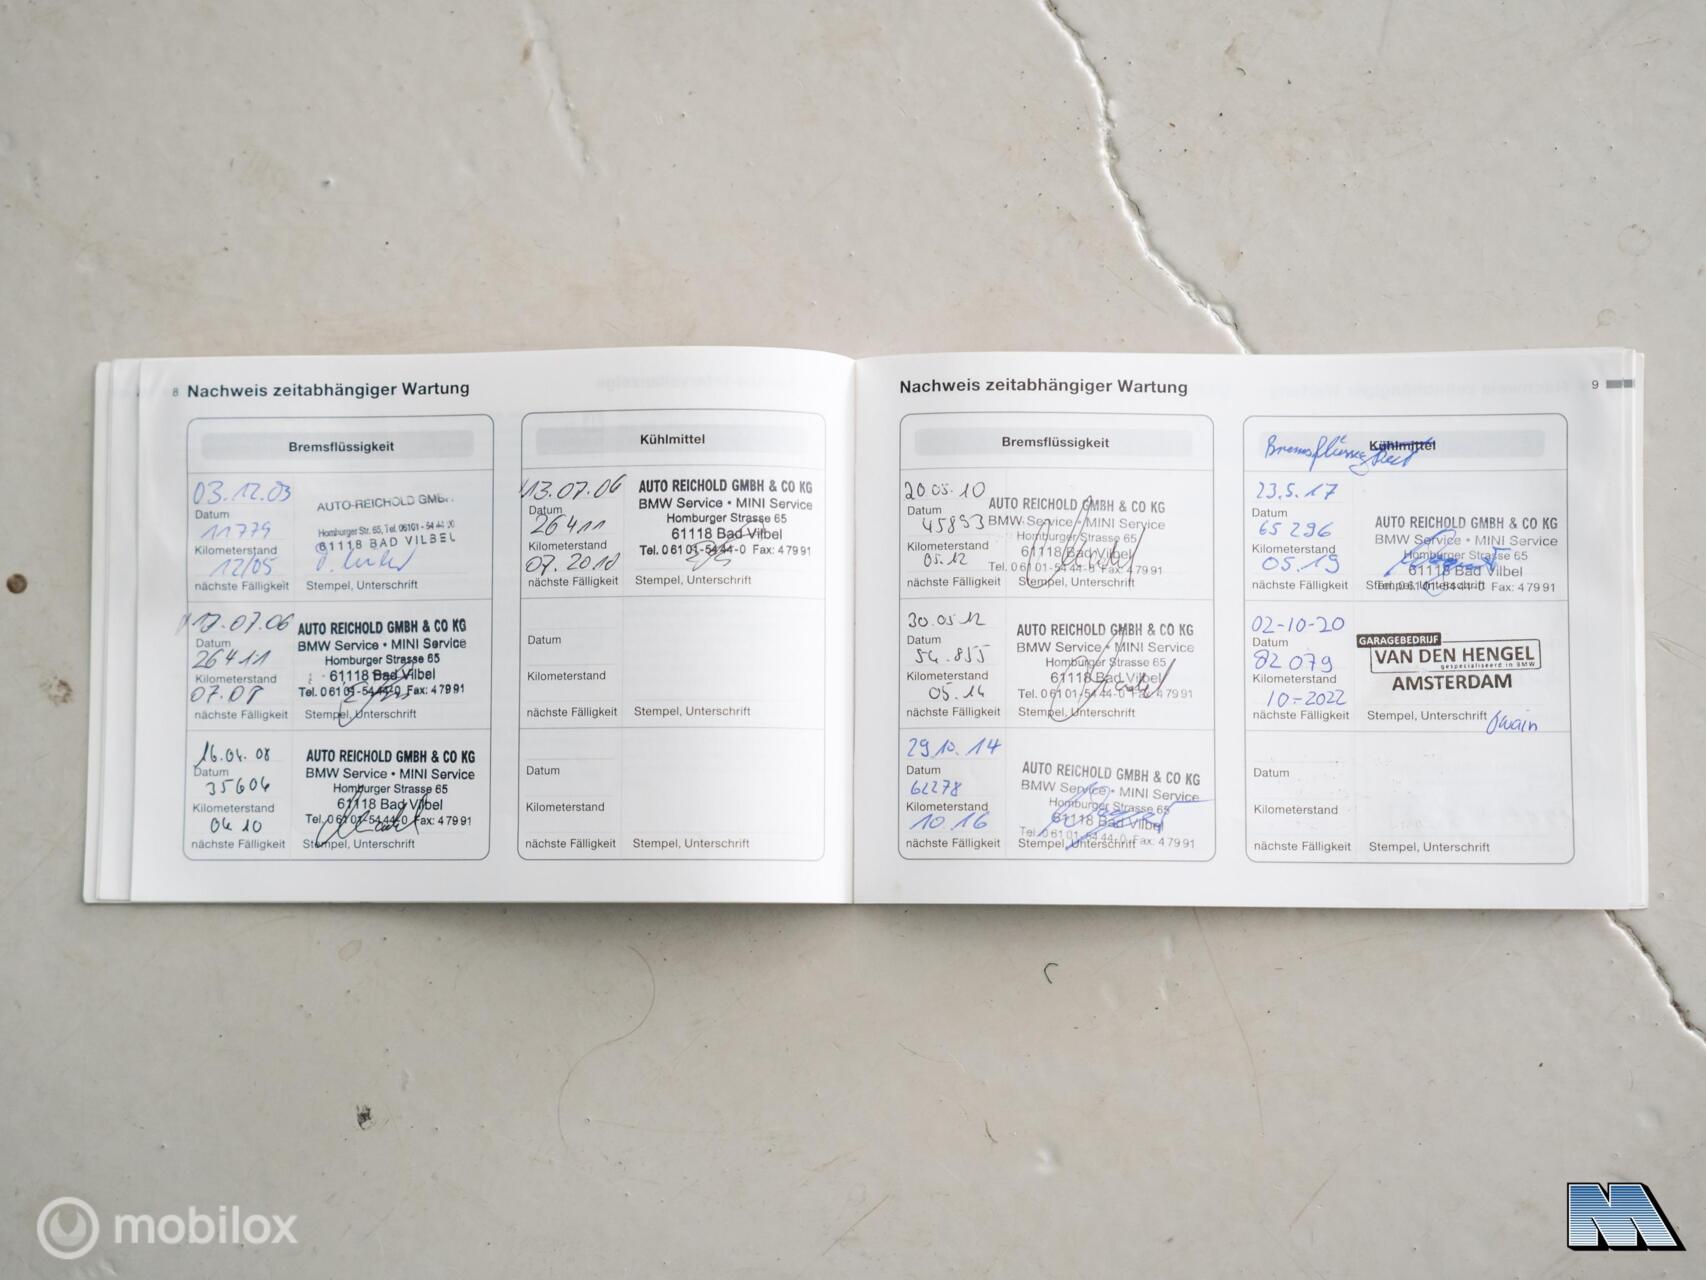 8 Nachweis zeitabhängiger Wartung
Bremsflüssigkeit
03.12.03
Datum
11779
Kilometerstand
12/05
nächste Fälligkeit
AUTO-REICHOLD GMBH
Homburger Str. 65, Tel. 06101 - 54 44
61118 BAD VILBEL
Stempel, Unterschrift
Datum
26411
Kilometerstand
07.08
nächste Fälligkeit
AUTO REICHOLD GMBH & CO KG
BMW Service • MINI Service
Homburger Strasse 65
61118 Bad Vilbel
Tel. 0 61 01-54 44-0 Fax: 4 79 91
Stempel, Unterschrift
16.04.08
Datum
35604
Kilometerstand
04 10
nächste Fälligkeit
AUTO REICHOLD GMBH & CO KG
BMW Service • MINI Service
Homburger Strasse 65
61118 Bad Vilbel
Tel. 0 61 01-54 44-0 Fax: 4 79 91
Stempel, Unterschrift
Kühlmittel
13.07.06
Datum
26411
Kilometerstand
07.2010
nächste Fälligkeit
AUTO REICHOLD GMBH & CO KG
BMW Service • MINI Service
Homburger Strasse 65
61118 Bad Vilbel
Tel. 0 61 01-54 44-0 Fax: 4 79 91
Stempel, Unterschrift
Datum
Kilometerstand
nächste Fälligkeit
Stempel, Unterschrift
Datum
Kilometerstand
nächste Fälligkeit
Stempel, Unterschrift
Nachweis zeitabhängiger Wartung 9
Bremsflüssigkeit
20.05.10
Datum
45893
Kilometerstand
05.12
nächste Fälligkeit
AUTO REICHOLD GMBH & CO KG
BMW Service • MINI Service
Homburger Strasse 65
61118 Bad Vilbel
Tel. 0 61 01-54 44-0 Fax: 4 79 91
Stempel, Unterschrift
30.05.12
Datum
54.855
Kilometerstand
05.14
nächste Fälligkeit
AUTO REICHOLD GMBH & CO KG
BMW Service • MINI Service
Homburger Strasse 65
61118 Bad Vilbel
Tel. 0 61 01-54 44-0 Fax: 4 79 91
Stempel, Unterschrift
29.10.14
Datum
62278
Kilometerstand
10.16
nächste Fälligkeit
AUTO REICHOLD GMBH & CO KG
BMW Service • MINI Service
Homburger Strasse 65
61118 Bad Vilbel
Tel. 0 61 01-54 44-0 Fax: 4 79 91
Stempel, Unterschrift
Bremsflüssigkeit Kühlmittel
23.5.17
Datum
65296
Kilometerstand
05.19
nächste Fälligkeit
AUTO REICHOLD GMBH & CO KG
BMW Service • MINI Service
Homburger Strasse 65
61118 Bad Vilbel
Tel. 0 61 01-54 44-0 Fax: 4 79 91
Stempel, Unterschrift
02-10-20
Datum
82079
Kilometerstand
10-2022
nächste Fälligkeit
GARAGEBEDRIJF
VAN DEN HENGEL
gespecialiseerd in BMW
AMSTERDAM
Stempel, Unterschrift
Datum
Kilometerstand
nächste Fälligkeit
Stempel, Unterschrift
mobilox
M